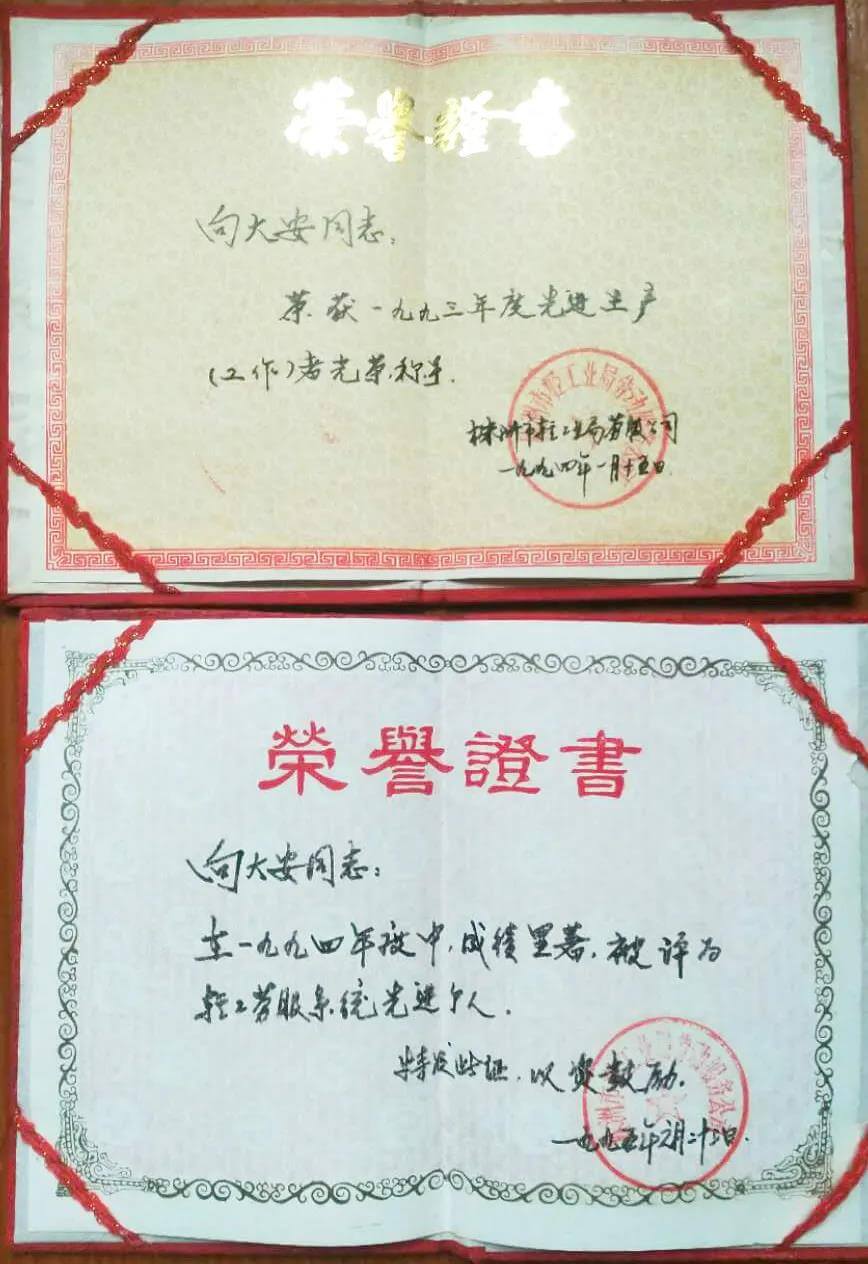 荣誉證書
向大安同志：
荣获一九九三年度先进生产
（工作）者光荣称号.
株洲市轻工业局劳服公司
一九九四年一月十五日
榮譽證書
向大安同志：
在一九九四年度中，成绩显著，被评为
轻工劳服系统先进个人.
特发此证，以资鼓励.
一九九五年二月二十二日.